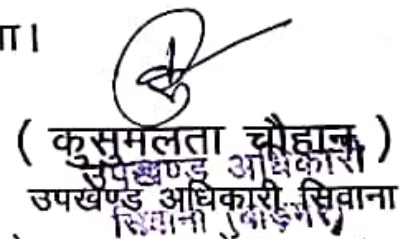 ा।
( कुसुमलता चौहान )
उपखण्ड अधिकारी
उपखण्ड अधिकारी सिवाना
सिवाना (बाड़मेर)